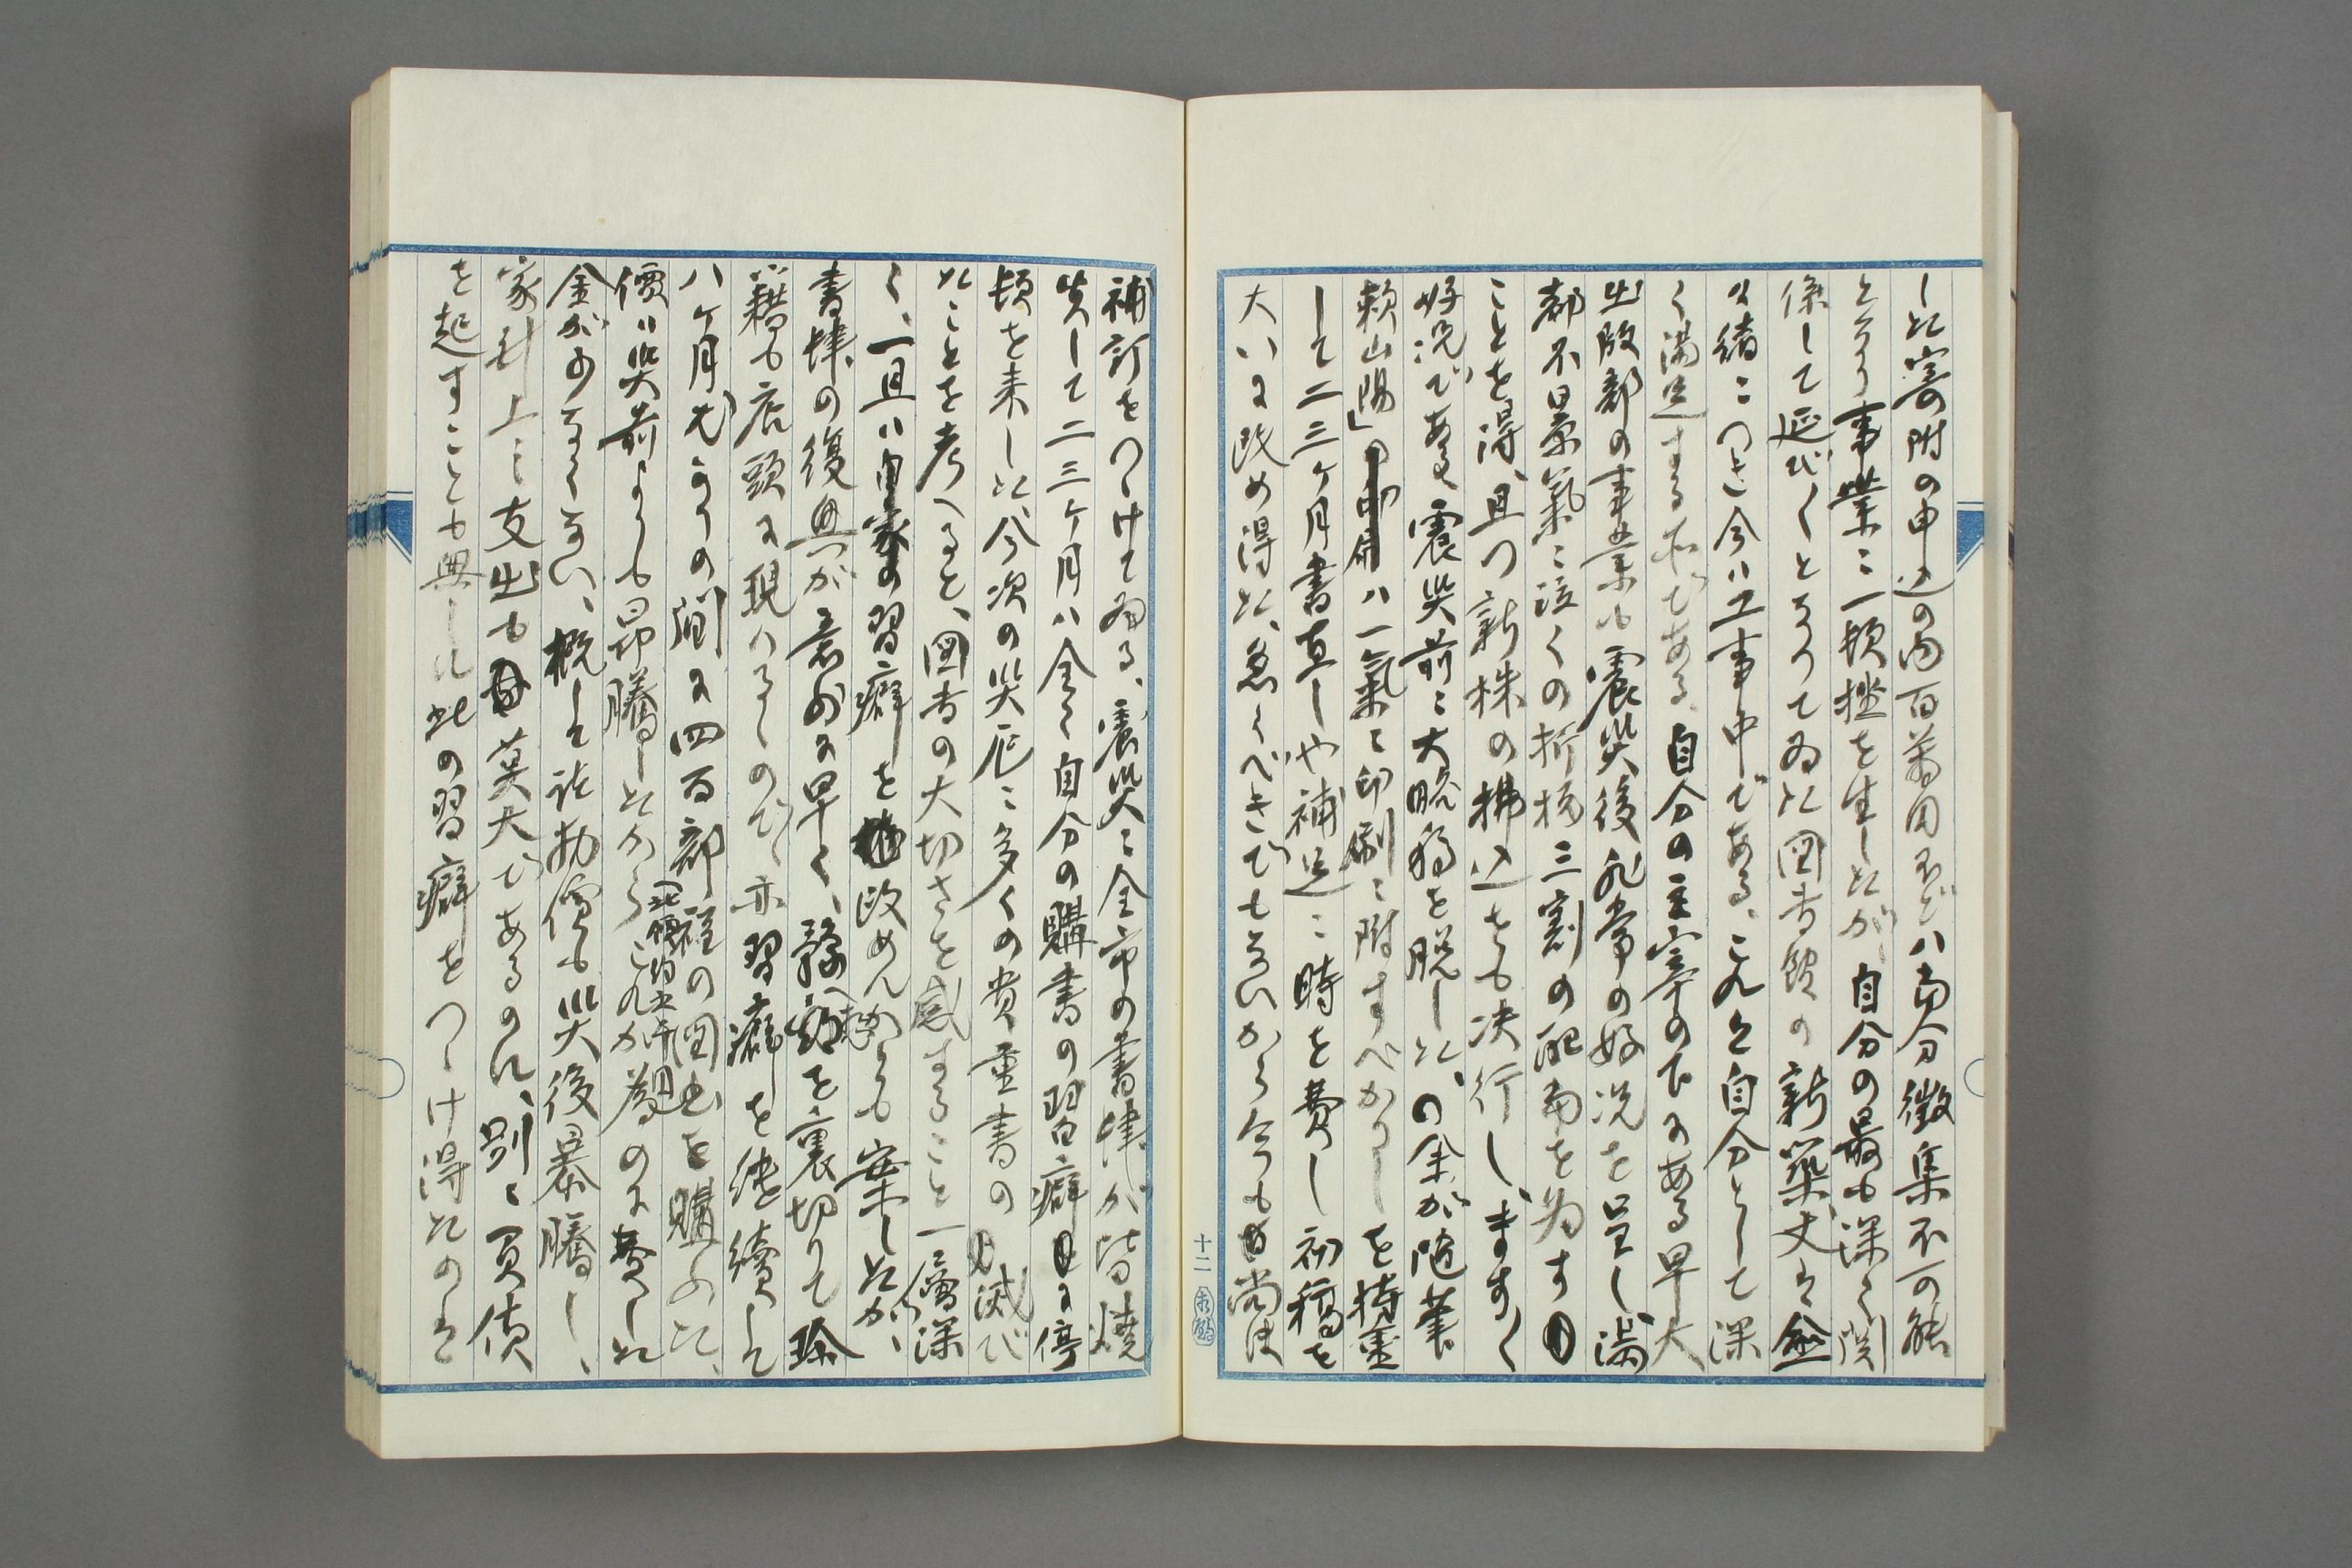 した寄附の申込の内百萬円ほどハ当分徴集不可能
となり事業ニ一頓挫を生したが、自分の最も深く関
係して延び〱となつてゐた図書館の新築丈は愈
々緒ニつき今ハ工事中である、これは自分として深
く満足する所である、自分の主宰の下にある早大
出版部の事業も震災後非常の好況を呈し、満
都不景氣ニ泣くの折柄三割の配当を為す
ことを得、且つ新株の拂込をも决行し、ます〱
好况である、震災前ニ大略稿を脱した、の余が随筆
頼山陽」ハ一氣ニ印刷ニ附すべかりしを持重
して二三ヶ月書直しや補足ニ時を費し初稿を
大いに改め得た、急ぐべきでもないから今も尚ほ
十二
補訂をつゞけてゐる、震災ニ全市の書肆が皆焼
失して二三ヶ月ハ全く自分の購書の習癖に停
頓を来した、今次の災厄ニ多くの貴重書の滅び
たことを考へると、図書の大切さを感ずること一層深
く、一旦ハ自家の習癖を改めんかとも案したが、
書肆の復興が意外に早く、豫期を裏切りて珍
籍も店頭に現ハるゝので、亦習癖を継続して
八ヶ月ばかりの間に四百部程の図書を購ふた、
價ハ災前よりも昂騰したから、これが為めに費した
金が少なくない、概して諸物價も災後暴騰し、
家計上ニ支出も莫大であるのに、別ニ買債
を起すことも無しに此の習癖をつゞけ得たのは